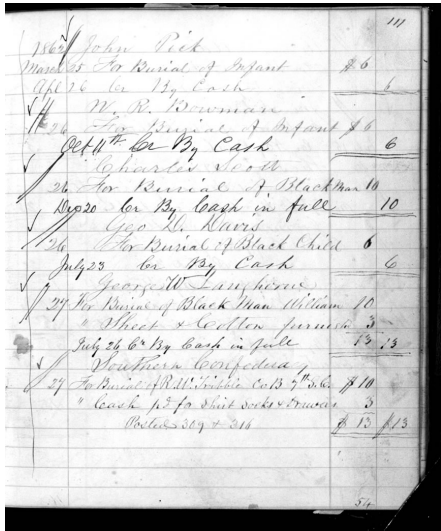 111
1862 John Pick
March 25 For Burial of Infant $ 6
Apl 26 Cr By Cash 6
W. R. Bowman
26 For Burial of Infant $ 6
Oct 11th Cr By Cash 6
Charles Scott
26 For Burial of Black Man 10
Dec 20 Cr By Cash in full 10
Geo D. Davis
26 For Burial of Black Child 6
July 23 Cr By Cash 6
George W Langhorne
27 For Burial of Black Man William 10
" Sheet & Cotton furnish 3
July 26 Cr By Cash in full 13 13
Southern Confedua,
27 For Burial of R.W. Co B 7th S.C. $ 10
" Cash pd for Shirt socks & Drawers 3
Posted 309 & 316 $ 13 $ 13